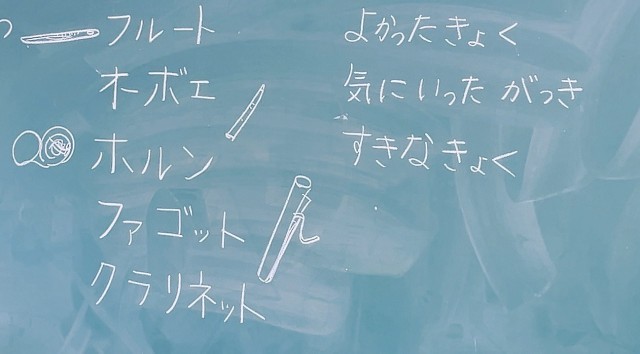 フルート
オーボエ
ホルン
ファゴット
クラリネット
よかったきょく
気にいった がっき
すきなきょく